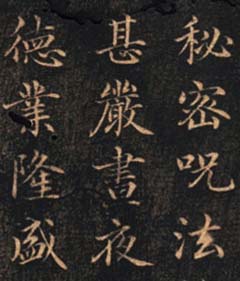 秘密呪法
甚嚴晝夜
德業隆盛